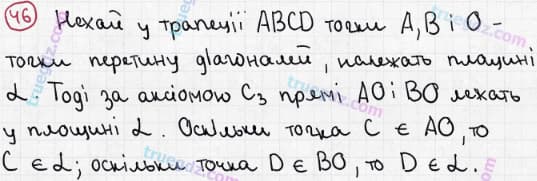 46 Нехай у трапеції ABCD точки A, B і O -
точки перетину діагоналей, належать площині
α. Тоді за аксіомою C₃ прямі AO і BO лежать
у площині α. Оскільки точка C ∈ AO, то
C ∈ α; оскільки точка D ∈ BO, то D ∈ α.